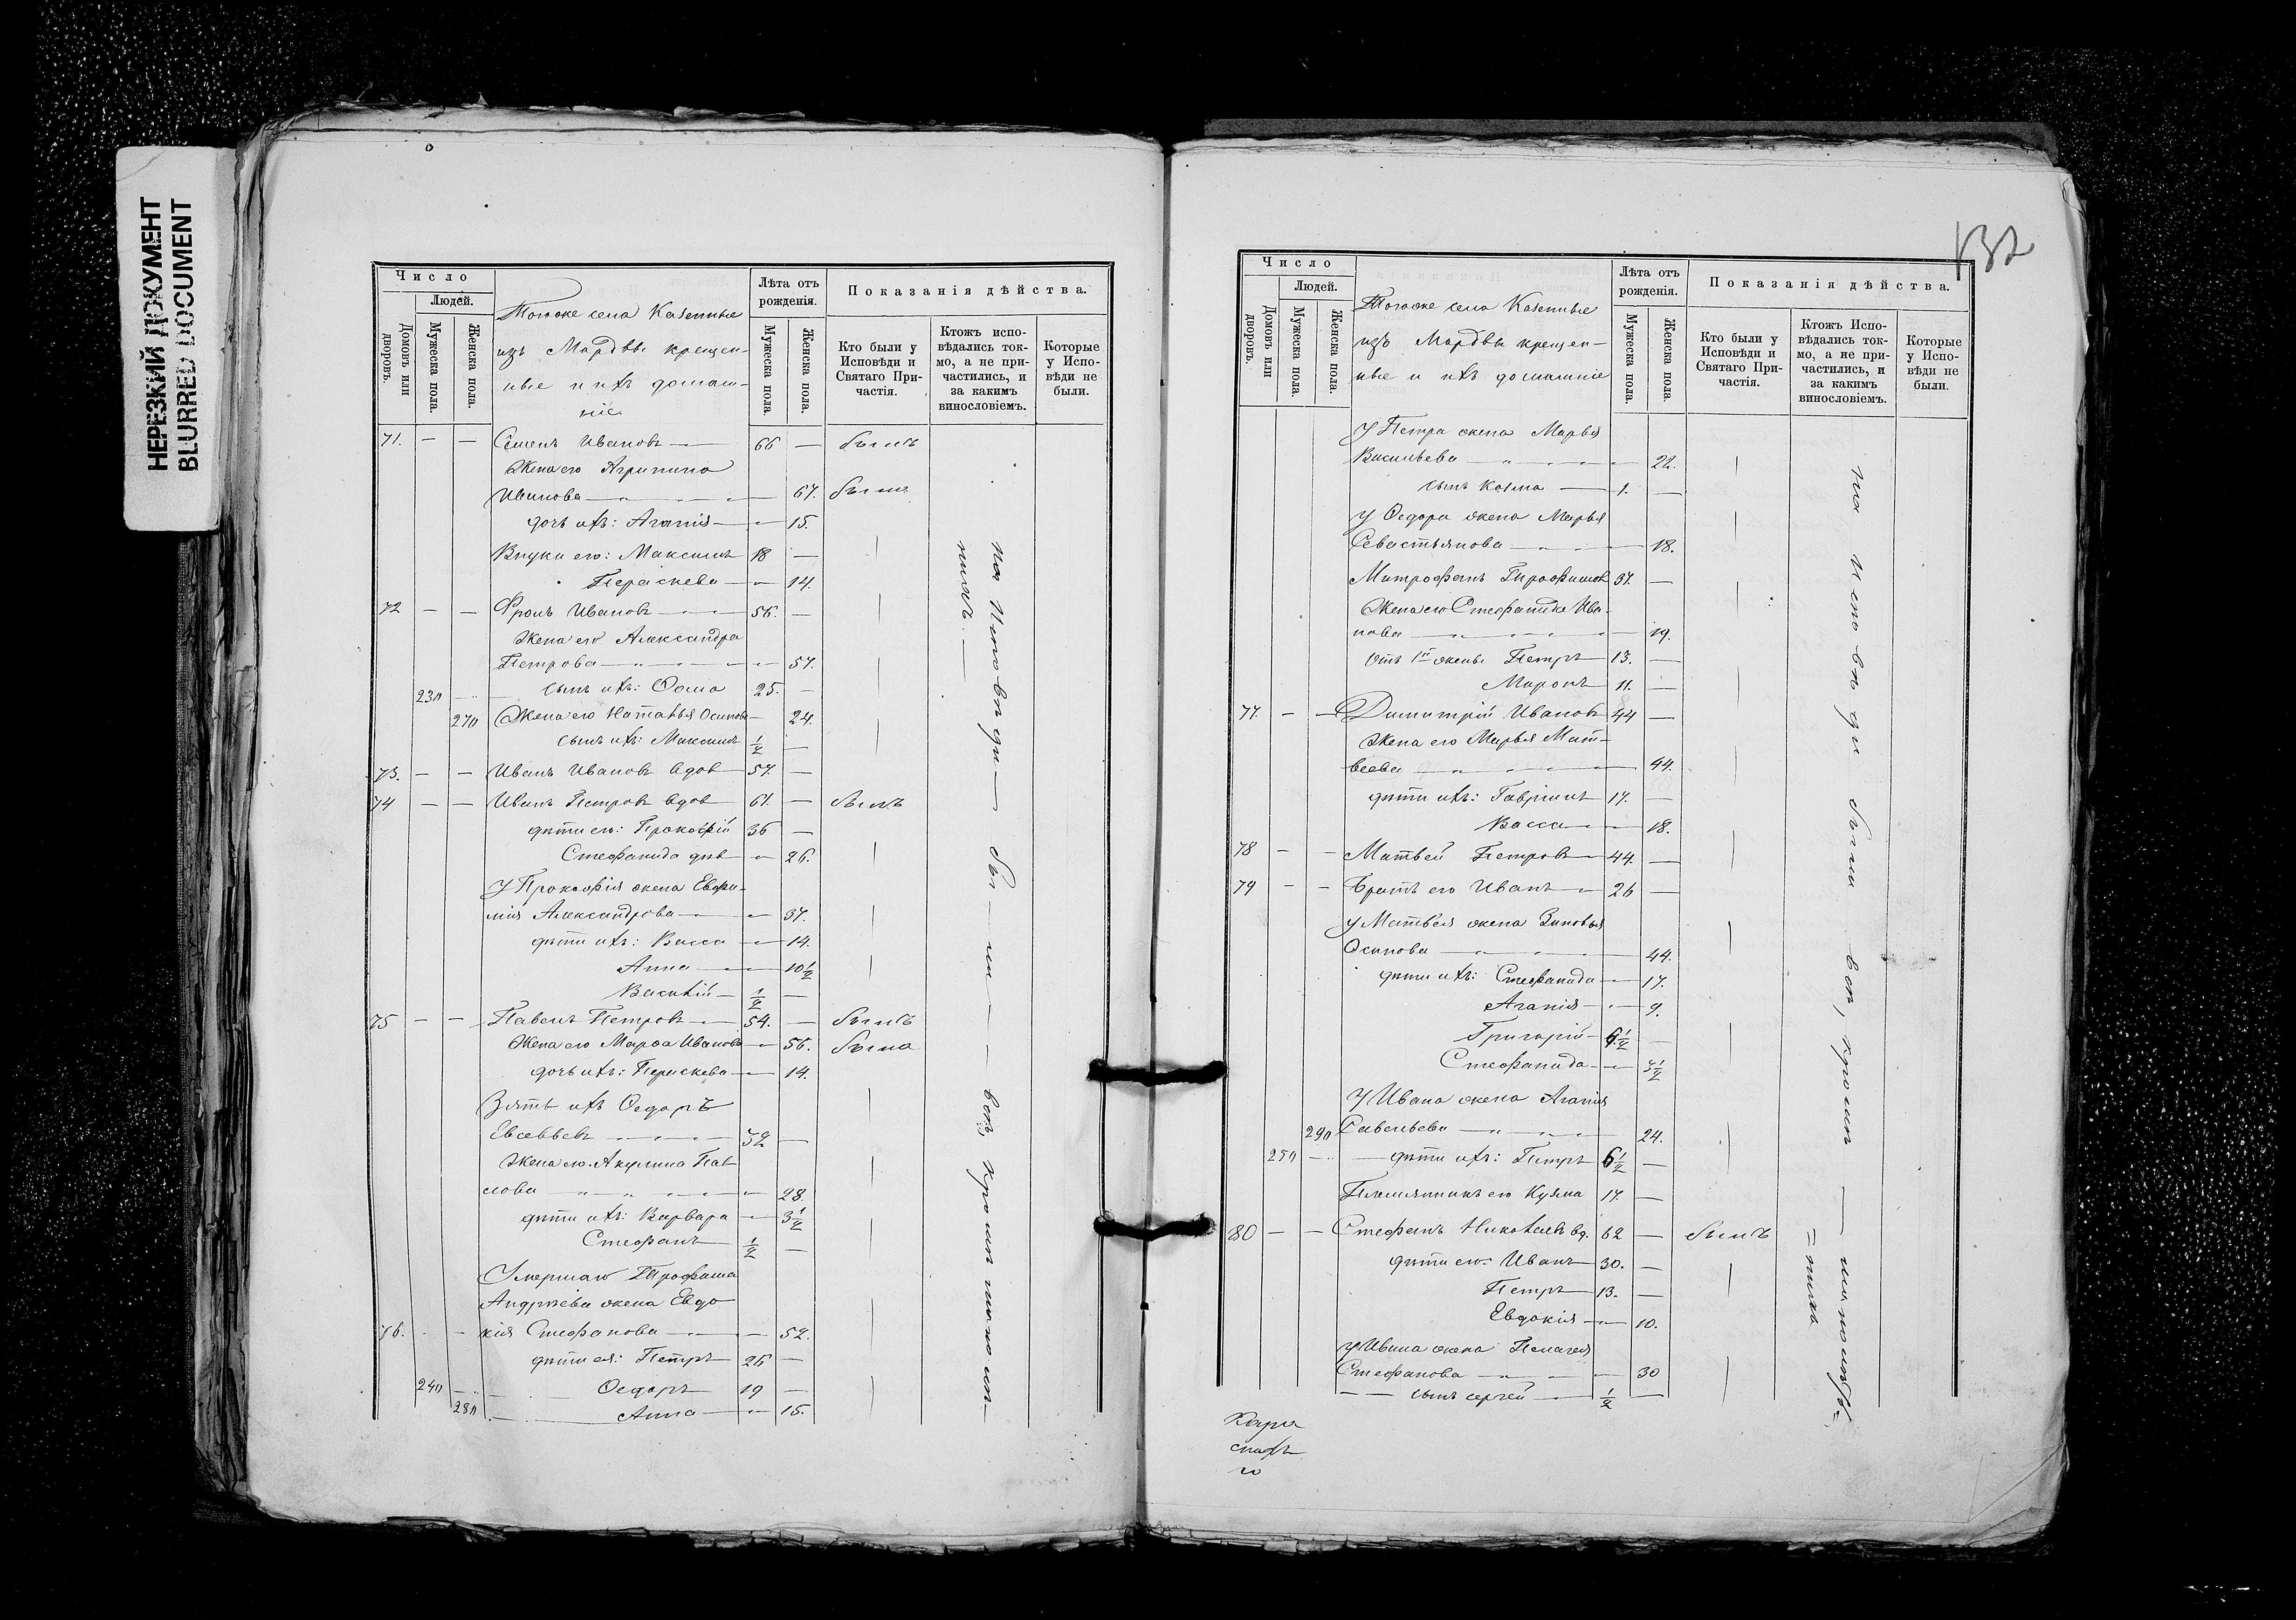 НЕРЕЗКИЙ ДОКУМЕНТ
BLURRED DOCUMENT
Число
Людей.
Домовъ или дворовъ.
Мужеска пола.
Женска пола.
Тогоже села Казенные
изъ Мордвы крещен-
ные и ихъ домаш-
ніе.
Лѣта отъ рожденія.
Мужеска пола.
Женска пола.
Показанія дѣйства.
Кто были у Исповѣди и Святаго При-частія.
Ктожъ испо-вѣдались ток-мо, а не при-частились, и за какимъ винословіемъ.
Которые у Испо-вѣди не были.
71. — — Семенъ Ивановъ — 66 — былъ
Жена его Агрипина
Иванова — 67. была
дочь ихъ: Агапія — 15.
Внуки его: Максимъ 18 —
Параскева — 14.
72 — — Фролъ Ивановъ — 56. —
Жена его Александра
Петрова — 57.
230 сынъ ихъ: Ѳома 25. —
270 Жена его Наталья Осипова — 24.
сынъ ихъ: Максимъ ½ —
73. — — Иванъ Ивановъ вдов 57. —
74 — — Иванъ Петровъ вдов 61. — былъ
дѣти его: Прокофій 36 —
Стефанида дѣв — 26.
У Прокофія жена Евфи-
мія Александрова — 37.
дѣти ихъ: Васса — 14.
Анна — 10½
Василій — ½ —
75 — — Павелъ Петровъ — 54. — былъ
Жена его Марѳа Иванова — 56. была
дочь ихъ: Параскева — 14.
Зять ихъ Ѳедоръ
Евсеевъ — 32 —
Жена его Акулина Пав
лова — 28.
дѣти ихъ: Варвара — 3½
Стефанъ ½ —
Умершаго Трофима
Андреева жена Евдо
76. — кія Стефанова — 52.
дѣти ея: Петръ 26 —
240 Ѳедоръ 19 —
280 Анна — 15.
на исповѣди были всѣ, кромѣ
132
Число
Людей.
Домовъ или дворовъ.
Мужеска пола.
Женска пола.
Тогоже села Казенные
изъ Мордвы крещен-
ные и ихъ домашніе
Лѣта отъ рожденія.
Мужеска пола.
Женска пола.
Показанія дѣйства.
Кто были у Исповѣди и Святаго При-частія.
Ктожъ Испо-вѣдались ток-мо, а не при-частились, и за какимъ винословіемъ.
Которые у Испо-вѣди не были.
У Петра жена Марья
Васильева — 22.
сынъ Козма — 1. —
У Ѳедора жена Марья
Севастьянова — 18.
Митрофанъ Трофимов 37. —
Жена его Стефанида Ива-
нова — 19.
Отъ 1й жены Петръ 13. —
Миронъ 11. —
77. — — Димитрій Ивановъ 44 —
Жена его Марья Мат-
веева — 44.
дѣти ихъ: Гавріилъ 17. —
Васса — 18.
78 — — Матвей Петровъ 44. —
79 — — Братъ его Иванъ 26 —
У Матвея жена Зиновья
Осипова — 44.
дѣти ихъ: Стефанида — 17.
Агапія — 9.
Григорій 6½ —
Стефанида — 3½
У Ивана жена Агапія
290 Савельева — 24.
250 дѣти ихъ: Петръ 6½ —
Племянникъ его Кузма 17. —
80 — — Стефанъ Николаевъ вд. 62 — былъ
дѣти его: Иванъ 30. —
Петръ 13. —
Евдокія — 10.
У Ивана жена Пелагея
Стефанова — 30
сынъ Сергей ½ —
на исповѣди были всѣ, кромѣ